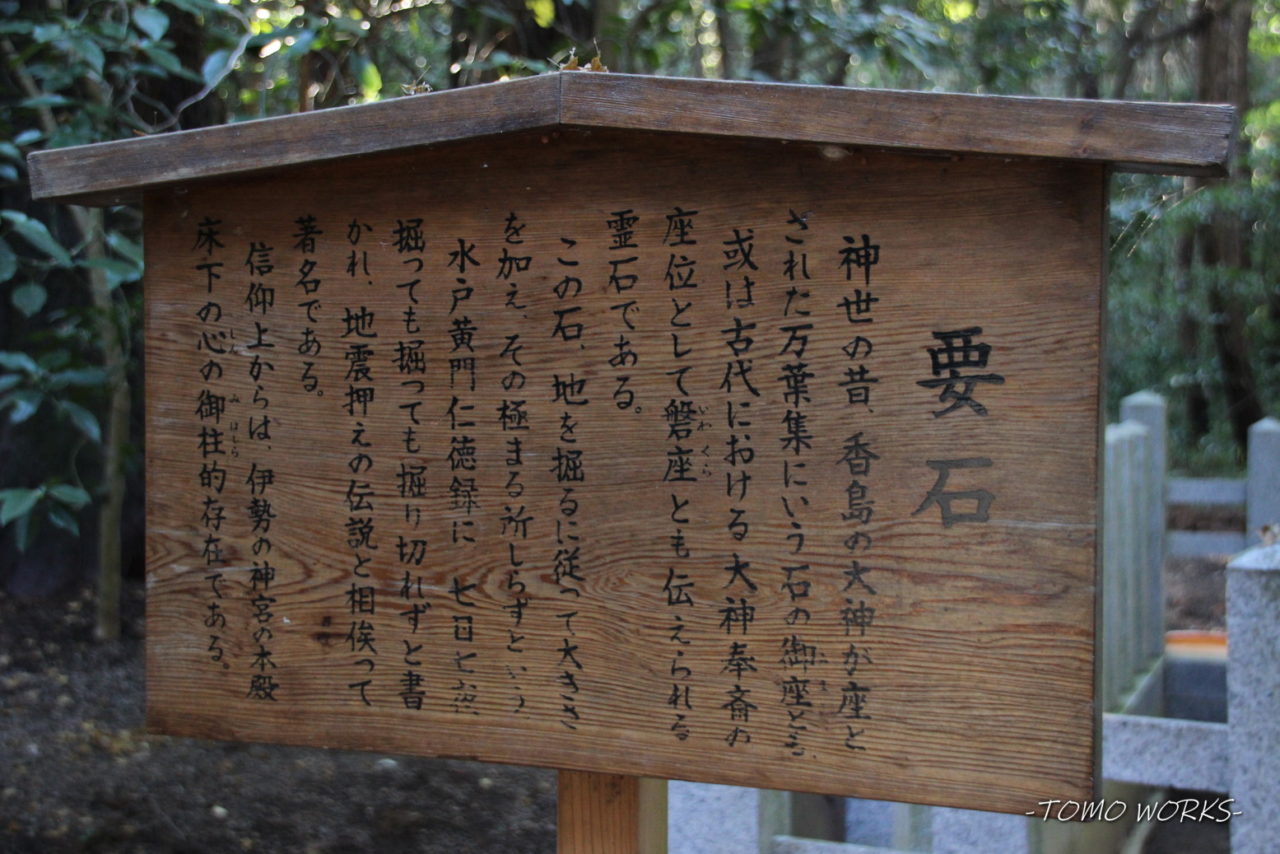 要石
神世の昔、香島の大神が座と
された万葉集にいう石の御座とも、
或は古代における大神奉斎の
座位として磐座とも伝えられる
霊石である。
この石、地を掘るに従って大きさ
を加え、その極まる所しらずという
水戸黄門仁徳録に 七日七夜
掘っても掘っても掘り切れずと書
かれ、地震押えの伝説と相俟って
著名である。
信仰上からは、伊勢の神宮の本殿
床下の心の御柱的存在である。
-TOMO WORKS-